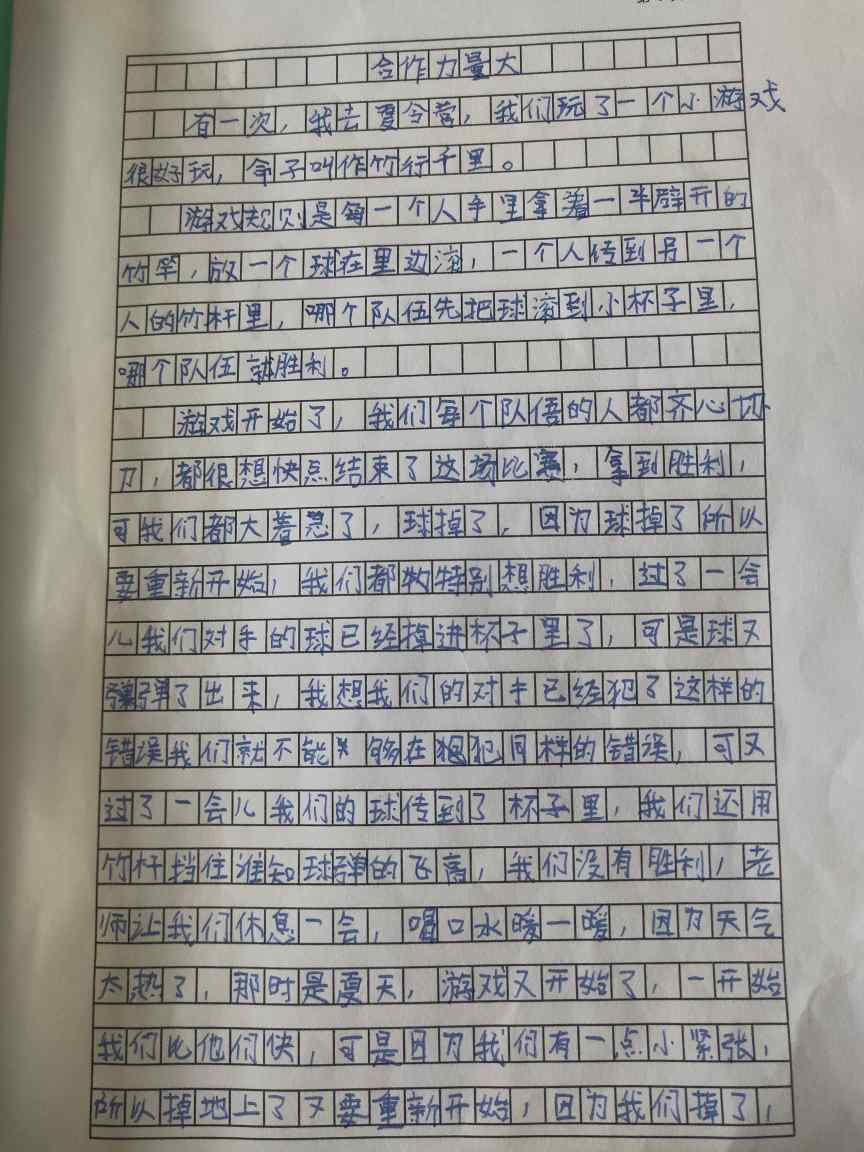 合作力量大
有一次，我去夏令营，我们玩了一个小游戏
很好玩，命子叫作竹行千里。
游戏规则是每一个人手里拿着一半辟开的
竹竿，放一个球在里边滚，一个人传到另一个
人的竹杆里，哪个队伍先把球滚到小杯子里，
哪个队伍就胜利。
游戏开始了，我们每个队悟的人都齐心协
力，都很想快点结束了这场比赛，拿到胜利，
可我们都太着急了，球掉了，因为球掉了所以
要重新开始，我们都特别想胜利，过了一会
儿我们对手的球已经掉进杯子里了，可是球又
弹了出来，我想我们的对手已经犯了这样的
错误我们就不能够在犯同样的错误，可又
过了一会儿我们的球传到了杯子里，我们还用
竹杆挡住谁知球弹的飞高，我们没有胜利，老
师让我们休息一会，喝口水暖一暖，因为天气
太热了，那时是夏天，游戏又开始了，一开始
我们比他们快，可是因为我们有一点小紧张，
所以掉地上了又要重新开始，因为我们掉了，